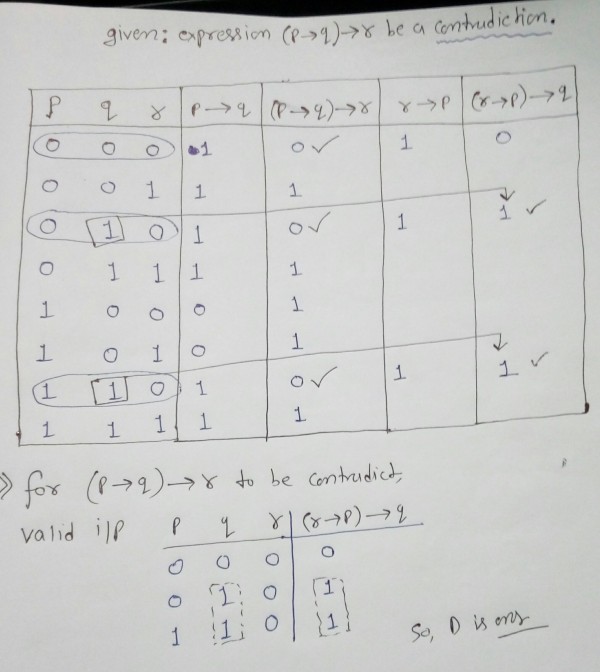 given: expression (P→q)→r be a contradiction.
P q r P→q (P→q)→r r→P (r→P)→q
0 0 0 1 0✓ 1 0
0 0 1 1 1
0 1 0 1 0✓ 1 1 ✓
0 1 1 1 1
1 0 0 0 1
1 0 1 0 1
1 1 0 1 0✓ 1 1 ✓
1 1 1 1 1
for (P→q)→r to be contradict,
valid i/p P q r (r→P)→q
0 0 0 0
0 1 0 1
1 1 0 1
So, D is ans